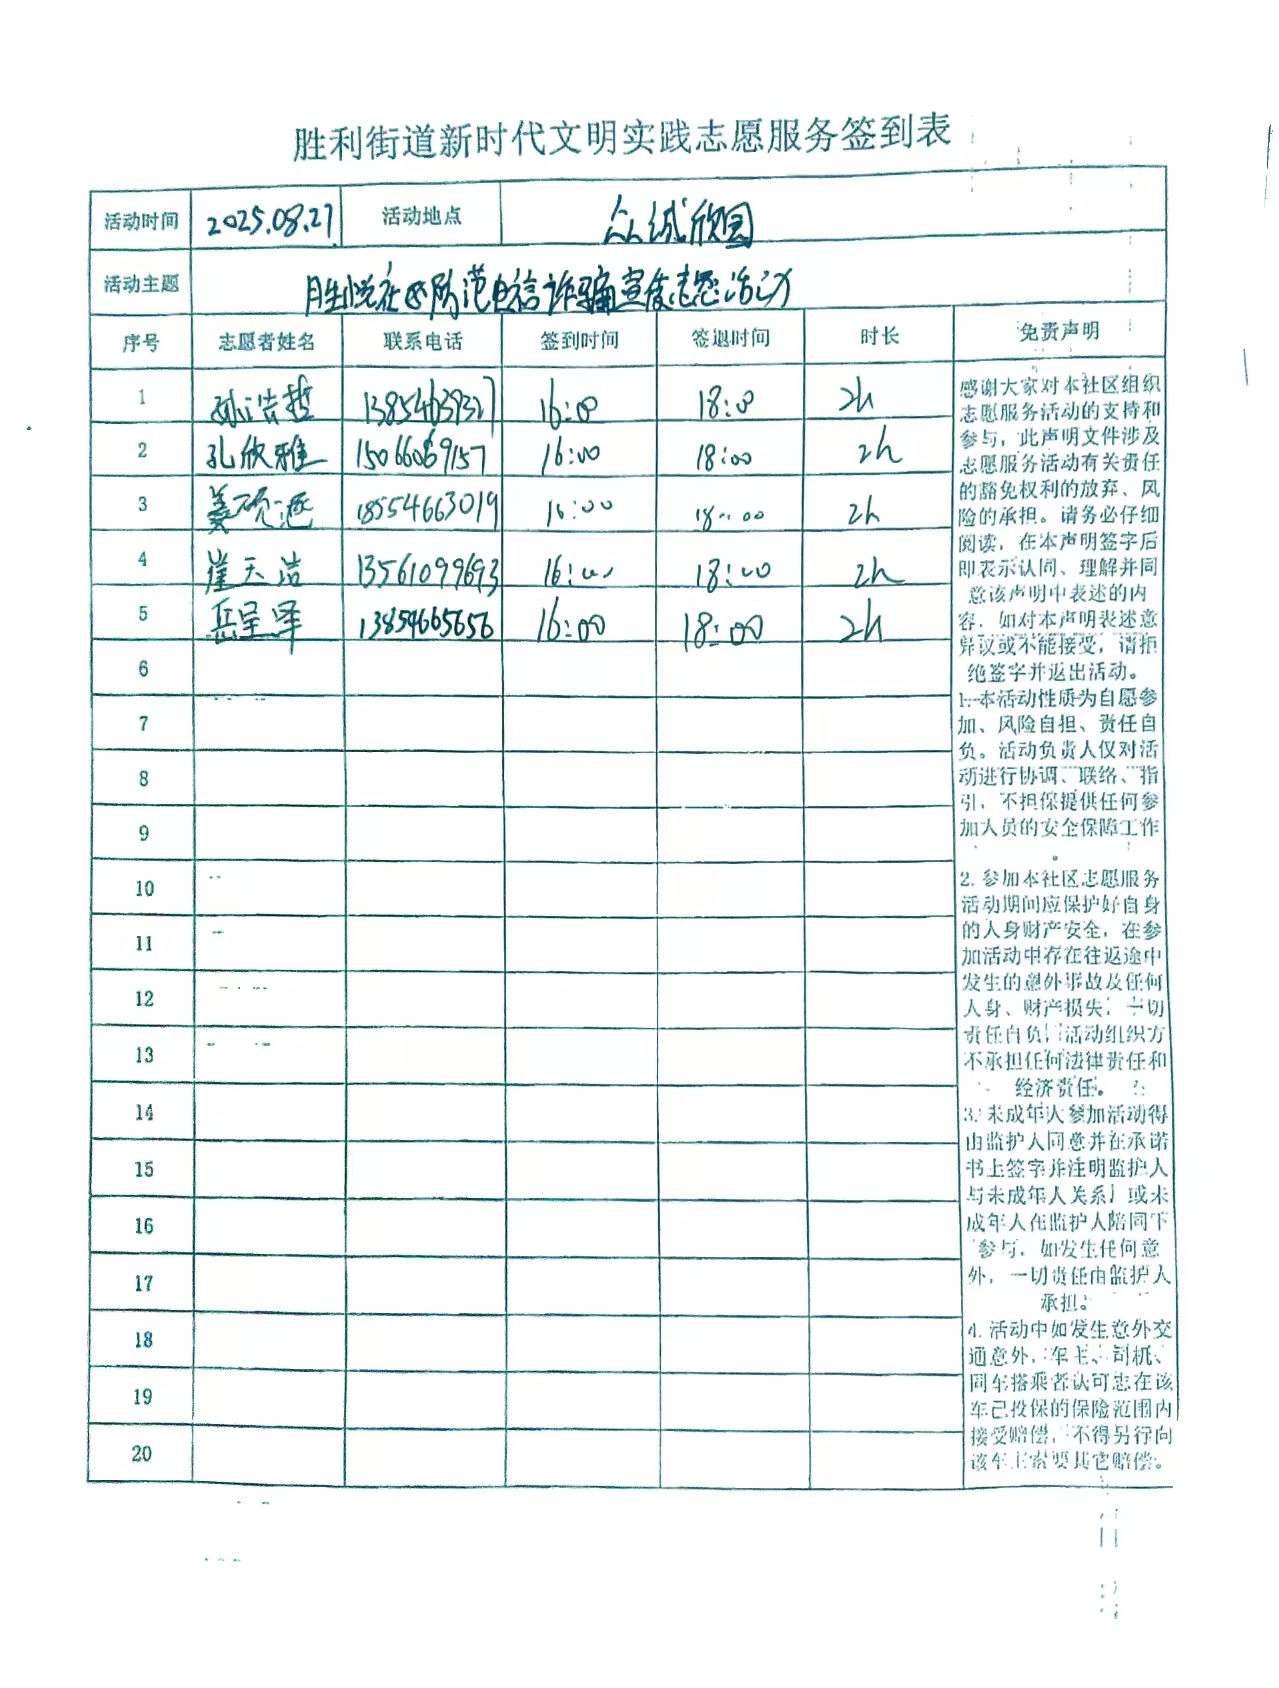 胜利街道新时代文明实践志愿服务签到表
活动时间 2025.08.27 活动地点 众诚欣园
活动主题 胜悦社区防范电信诈骗宣传志愿活动
序号 志愿者姓名 联系电话 签到时间 签退时间 时长 免责声明
1 孙浩哲 13854639327 16:00 18:00 2h
2 孔欣雅 15066069157 16:00 18:00 2h
3 姜 18554663019 16:00 18:00 2h
4 崔天浩 13561099693 16:00 18:00 2h
5 岳呈泽 13854665656 16:00 18:00 2h
6
7
8
9
10
11
12
13
14
15
16
17
18
19
20
感谢大家对本社区组织
志愿服务活动的支持和
参与,此声明文件涉及
志愿服务活动有关责任
的豁免权利的放弃、风
险的承担。请务必仔细
阅读,在本声明签字后
即表示认同、理解并同
意该声明中表述的内
容,如对本声明表述意
异议或不能接受,请拒
绝签字并返出活动。
1.本活动性质为自愿参
加、风险自担、责任自
负。活动负责人仅对活
动进行协调、联络、指
引,不担保提供任何参
加人员的安全保障工作
。
2.参加本社区志愿服务
活动期间应保护好自身
的人身财产安全,在参
加活动中存在往返途中
发生的意外事故及任何
人身、财产损失,一切
责任自负,活动组织方
不承担任何法律责任和
经济责任。
3.未成年人参加活动得
由监护人同意并在承诺
书上签字并注明监护人
与未成年人关系,或未
成年人在监护人陪同下
参与,如发生任何意
外,一切责任由监护人
承担。
4.活动中如发生意外交
通意外,车主、司机、
同车搭乘者认可志在该
车已投保的保险范围内
接受赔偿,不得另行向
该车主索要其它赔偿。